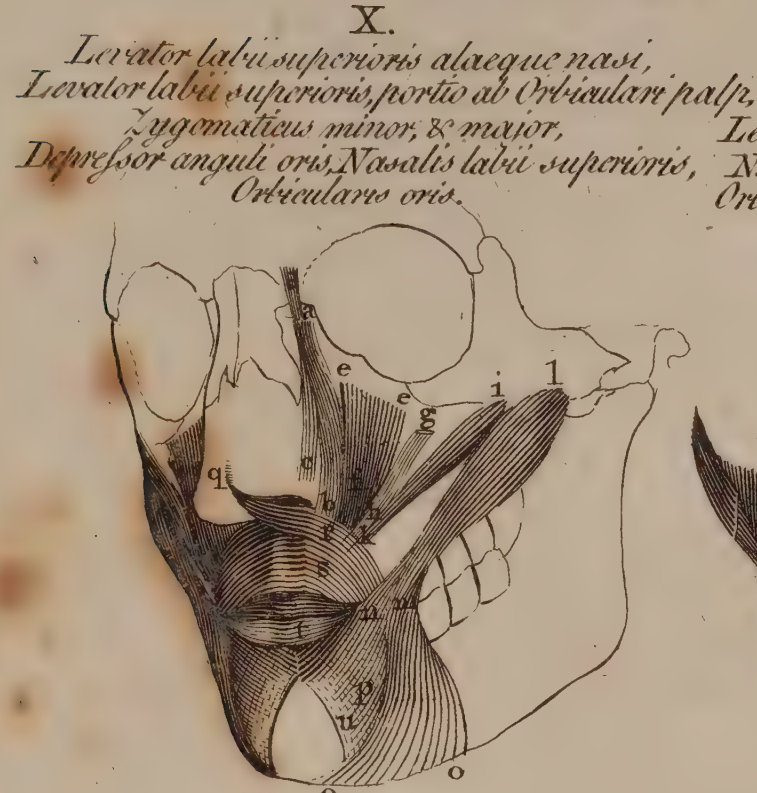 X.
Levator labii superioris alaeque nasi,
Levator labii superioris, portio ab Orbiculari palp,
Zygomaticus minor, & major,
Le
Depreſsor anguli oris, Nasalis labii superioris,
N
Orbicularis oris.
Orb
a
e
e
i
l
g
c
q
b
h
f
k
s
n
m
t
p
u
o
o